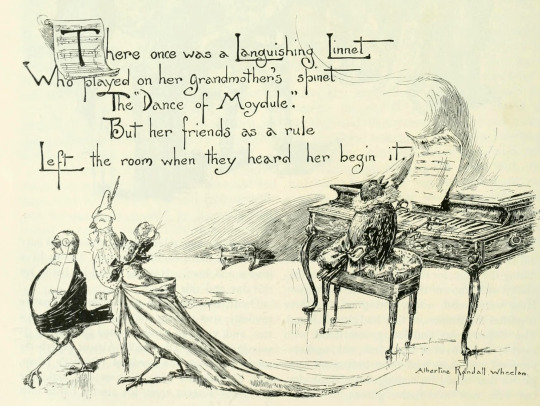 There once was a Languishing Linnet
Who played on her grandmother's spinet
The "Dance of Moydule".
But her friends as a rule
Left the room when they heard her begin it.
Albertine Randall Wheelan.